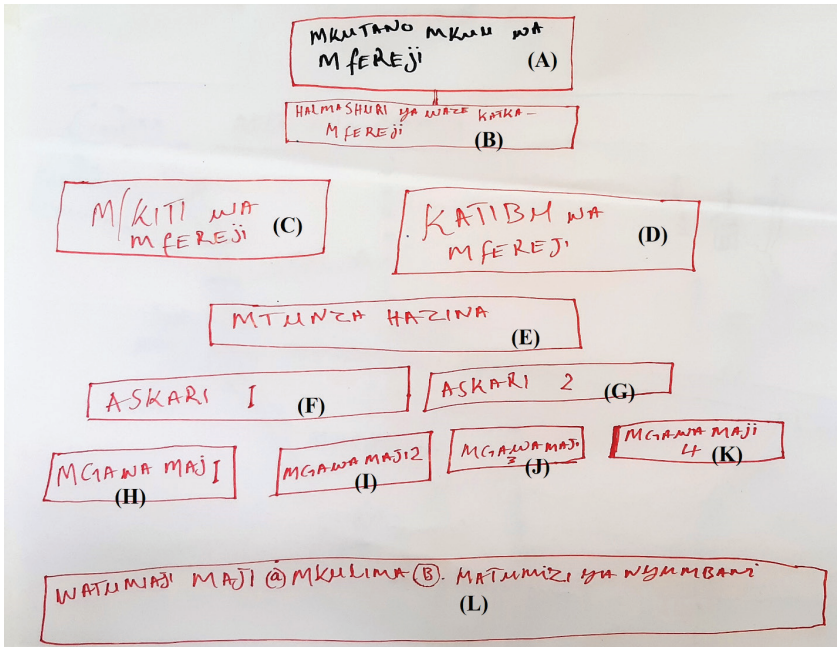 MKUTANO MKUU WA
MFEREJI (A)
HALMASHURI YA WAZE KATKA -
MFEREJI (B)
M/KITI WA
MFEREJI (C)
KATIBU WA
MFEREJI (D)
MTUNZA HAZINA (E)
ASKARI I (F)
ASKARI 2 (G)
MGAWA MAJI I (H)
MGAWA MAJI 2 (I)
MGAWA MAJI
3 (J)
MGAWA MAJI
4 (K)
WATUMIAJI MAJI @ MKULIMA (B). MATUMIZI YA NYUMBANI
(L)